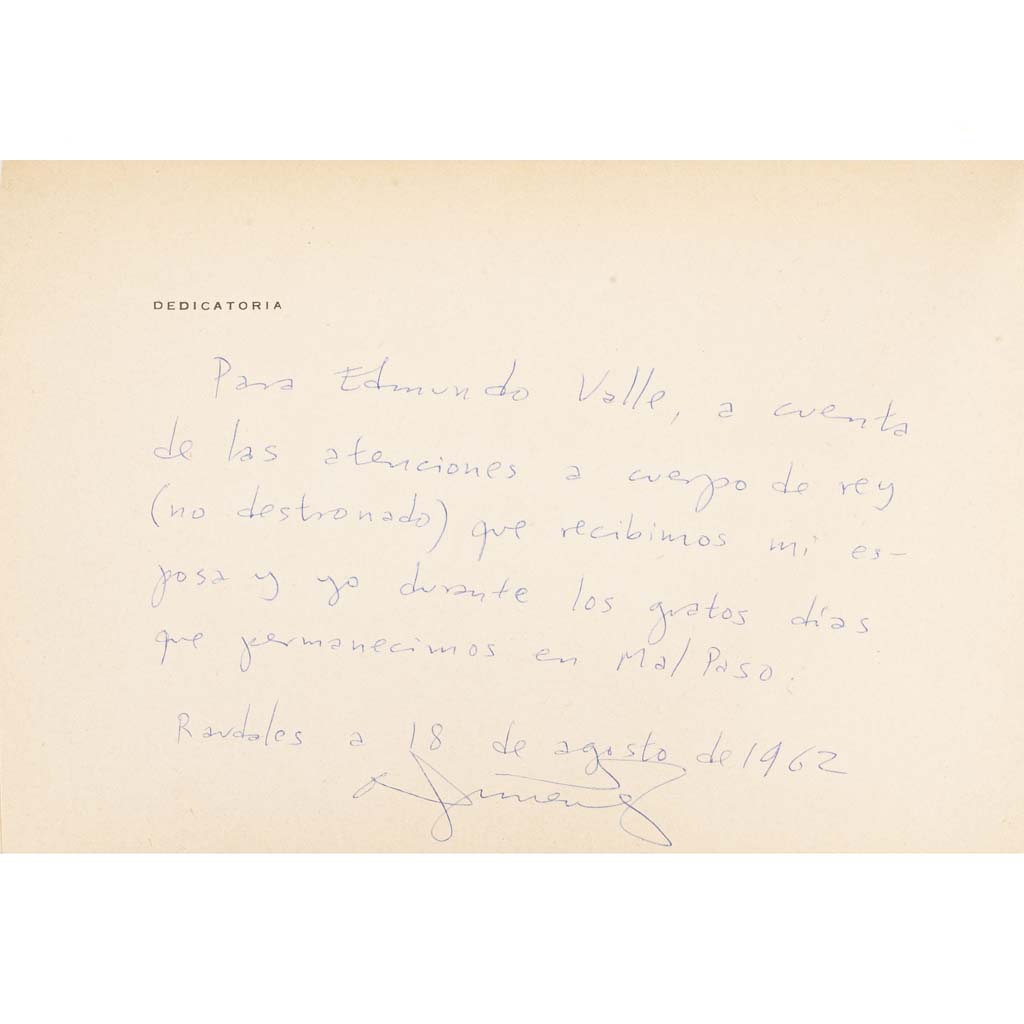 DEDICATORIA
Para Edmundo Valle, a cuenta
de las atenciones a cuerpo de rey
(no destronado) que recibimos mi es-
posa y yo durante los gratos días
que permanecimos en Mal Paso.
Raudales a 18 de agosto de 1962